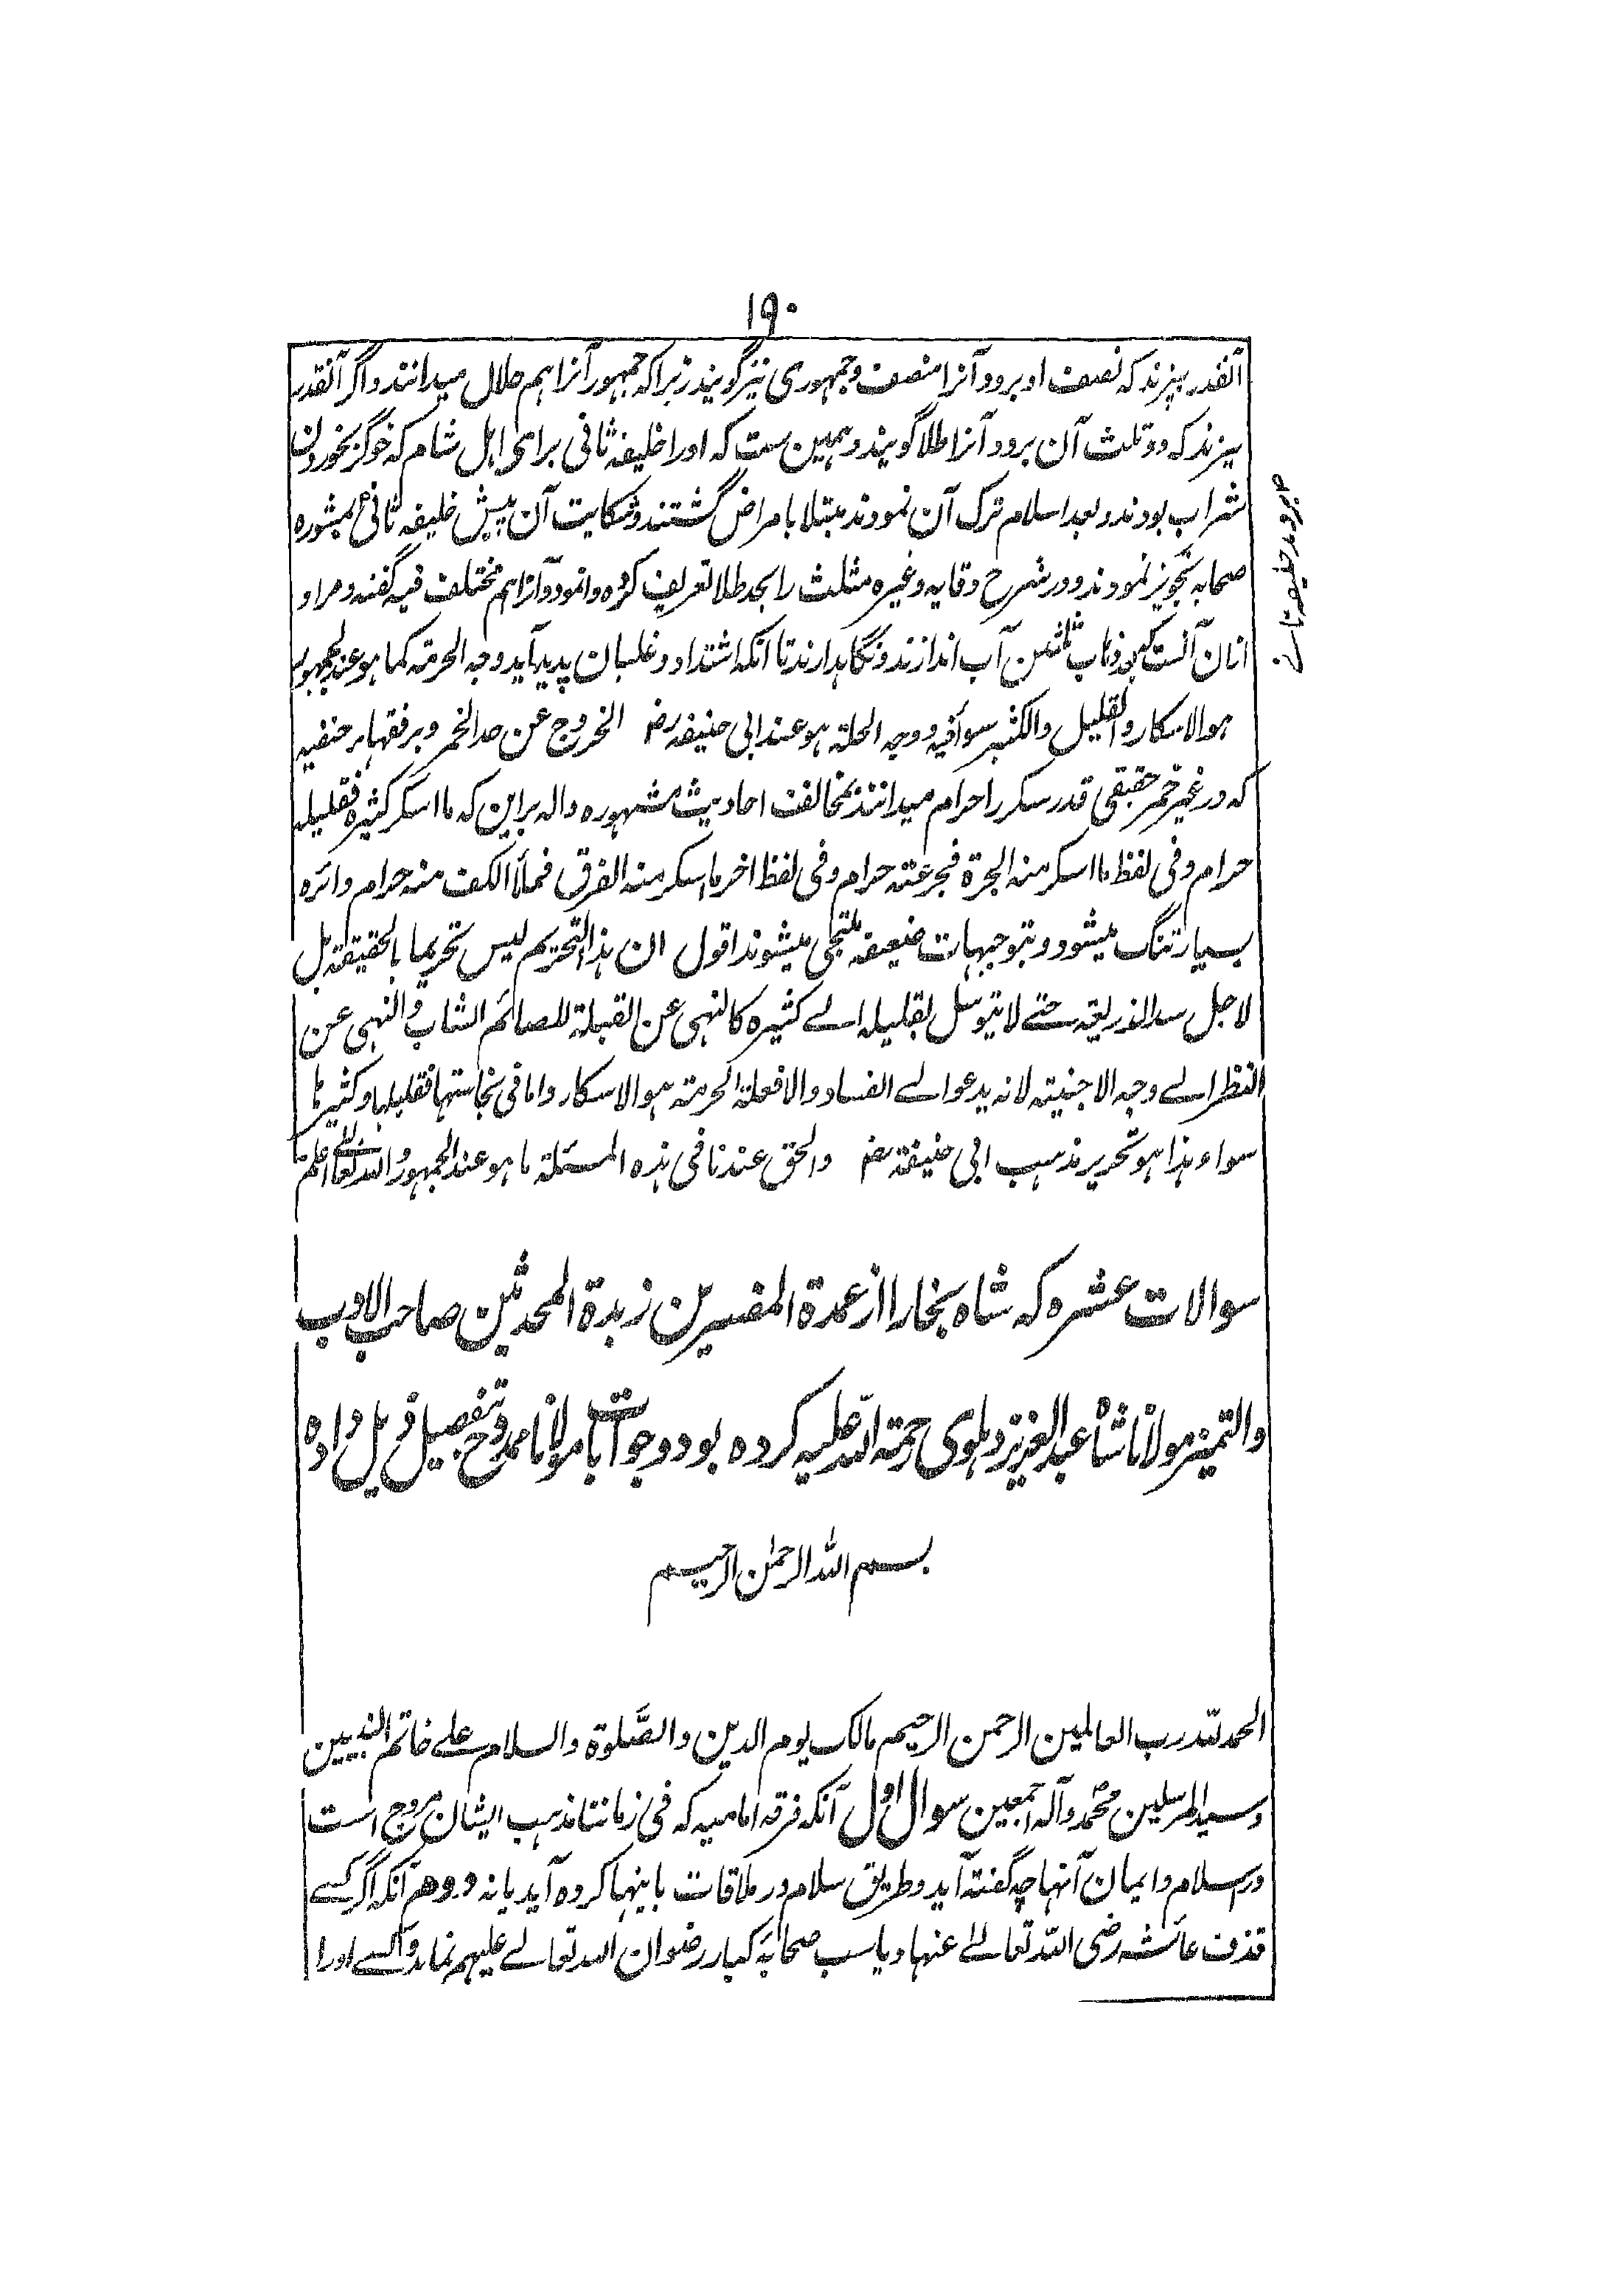 ۱۹۰
آنقدر بپزند که نصف او برود آنرا منصف و جمهوری نیز گویند زیرا که جمهور آنرا هم حلال میدانند و اگر آنقدر
بپزند که دو ثلث آن برود آنرا طلا گویند و همین ست که اورا خلیفه ثانی برای اهل شام که خوگر بخوردن
شراب بودند و بعد اسلام ترک آن نمودند مبتلا بامراض گشتند و شکایت آن پیش خلیفه ثانی بمشوره
صحابه تجویز نمودند و در شرح وقایه و غیره مثلث را بجد طلا تعریف کرده وانمود و آنرا هم مختلف فیه گفته و مراد
ازان آنست که بعد ذهاب ثلثین آب اندازند و نگاهدارند تا آنکه اشتداد و غلیان پدید آید وجه الحرمة کما هو عند الجمهور
هو الاسکار والقلیل والکثیر سواء فیه و وجه الحلة هو عند ابی حنیفه رض الخروج عن حد الخمر و بر فقهاء حنفیه
که در غیر خمر حقیقی قدر سکر را حرام میدانند بمخالفت احادیث مشهوره داله براین که ما اسکر کثیره فقلیله
حرام وفی لفظ ما اسکر منه الجرة فجرعته حرام وفی لفظ اخر ما اسکر منه الفرق فملأ الکف منه حرام دائره
بسیار تنگ میشود و بتوجیهات ضعیفه ملتجی میشوند اقول ان هذا التحریم لیس تحریما بالحقیقة بل
لاجل سد الذریعة حتے لا یتوسل بقلیله الے کثیره کالنهی عن القبلة للصائم الشاب والنهی عن
النظر الے وجه الاجنبیة لانه یدعو الے الفساد والا فعلة الحرمة هو الاسکار واما فی نجاستها فقلیلها وکثیرها
سواء هذا هو تحریر مذهب ابی حنیفة رض والحق عندنا فی هذه المسئلة ما هو عند الجمهور والله تعالی اعلم
سوالات عشره که شاه بخارا از عمدة المفسرین زبدة المحدثین صاحب الادب
والتمیز مولانا شاه عبدالعزیز دهلوی رحمة الله علیه کرده بود و جوابات آنها مولانا ممدوح بتفصیل ذیل داده
بسم الله الرحمن الرحیم
الحمد لله رب العالمین الرحمن الرحیم مالک یوم الدین والصلوة والسلام علے خاتم النبیین
وسید المرسلین محمد وآله اجمعین سوال اول آنکه فرقه امامیه که فی زماننا مذهب ایشان مروج است
در اسلام و ایمان آنها چه گفته آید و طریق سلام در ملاقات باینها کرده آید یا نه دوم آنکه اگر کسے
قذف عائشه رضی الله تعالےٰ عنها و یا سب صحابه کبار رضوان الله تعالے علیهم نماید و کسے اورا